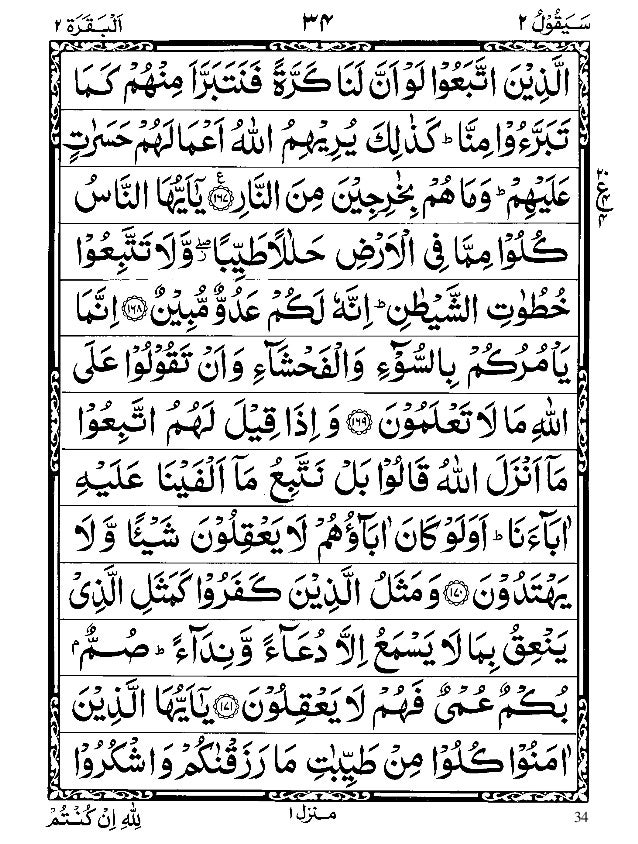 سَيَقُوْلُ ٢ ٣٤ اَلْبَقَرَة ٢
الَّذِيْنَ اتَّبَعُوْا لَوْ اَنَّ لَنَا كَرَّةً فَنَتَبَرَّاَ مِنْهُمْ كَمَا
تَبَرَّءُوْا مِنَّا ؕ كَذٰلِكَ يُرِيْهِمُ اللّٰهُ اَعْمَالَهُمْ حَسَرٰتٍ
عَلَيْهِمْ ؕ وَمَا هُمْ بِخٰرِجِيْنَ مِنَ النَّارِ ۧ ﴿١٦٧﴾ يٰۤاَيُّهَا النَّاسُ
كُلُوْا مِمَّا فِى الْاَرْضِ حَلٰلًا طَيِّبًا ۖ وَّلَا تَتَّبِعُوْا
خُطُوٰتِ الشَّيْطٰنِ ؕ اِنَّهٗ لَكُمْ عَدُوٌّ مُّبِيْنٌ ﴿١٦٨﴾ اِنَّمَا
يَاْمُرُكُمْ بِالسُّوْٓءِ وَالْفَحْشَآءِ وَاَنْ تَقُوْلُوْا عَلَى
اللّٰهِ مَا لَا تَعْلَمُوْنَ ﴿١٦٩﴾ وَاِذَا قِيْلَ لَهُمُ اتَّبِعُوْا
مَاۤ اَنْزَلَ اللّٰهُ قَالُوْا بَلْ نَتَّبِعُ مَاۤ اَلْفَيْنَا عَلَيْهِ
اٰبَآءَنَا ؕ اَوَلَوْ كَانَ اٰبَآؤُهُمْ لَا يَعْقِلُوْنَ شَيْـًٔا وَّلَا
يَهْتَدُوْنَ ﴿١٧٠﴾ وَمَثَلُ الَّذِيْنَ كَفَرُوْا كَمَثَلِ الَّذِىْ
يَنْعِقُ بِمَا لَا يَسْمَعُ اِلَّا دُعَآءً وَّنِدَآءً ؕ صُمٌّۢ
بُكْمٌ عُمْىٌ فَهُمْ لَا يَعْقِلُوْنَ ﴿١٧١﴾ يٰۤاَيُّهَا الَّذِيْنَ
اٰمَنُوْا كُلُوْا مِنْ طَيِّبٰتِ مَا رَزَقْنٰكُمْ وَاشْكُرُوْا
34 منزل ١ لِلّٰهِ اِنْ كُنْتُمْ